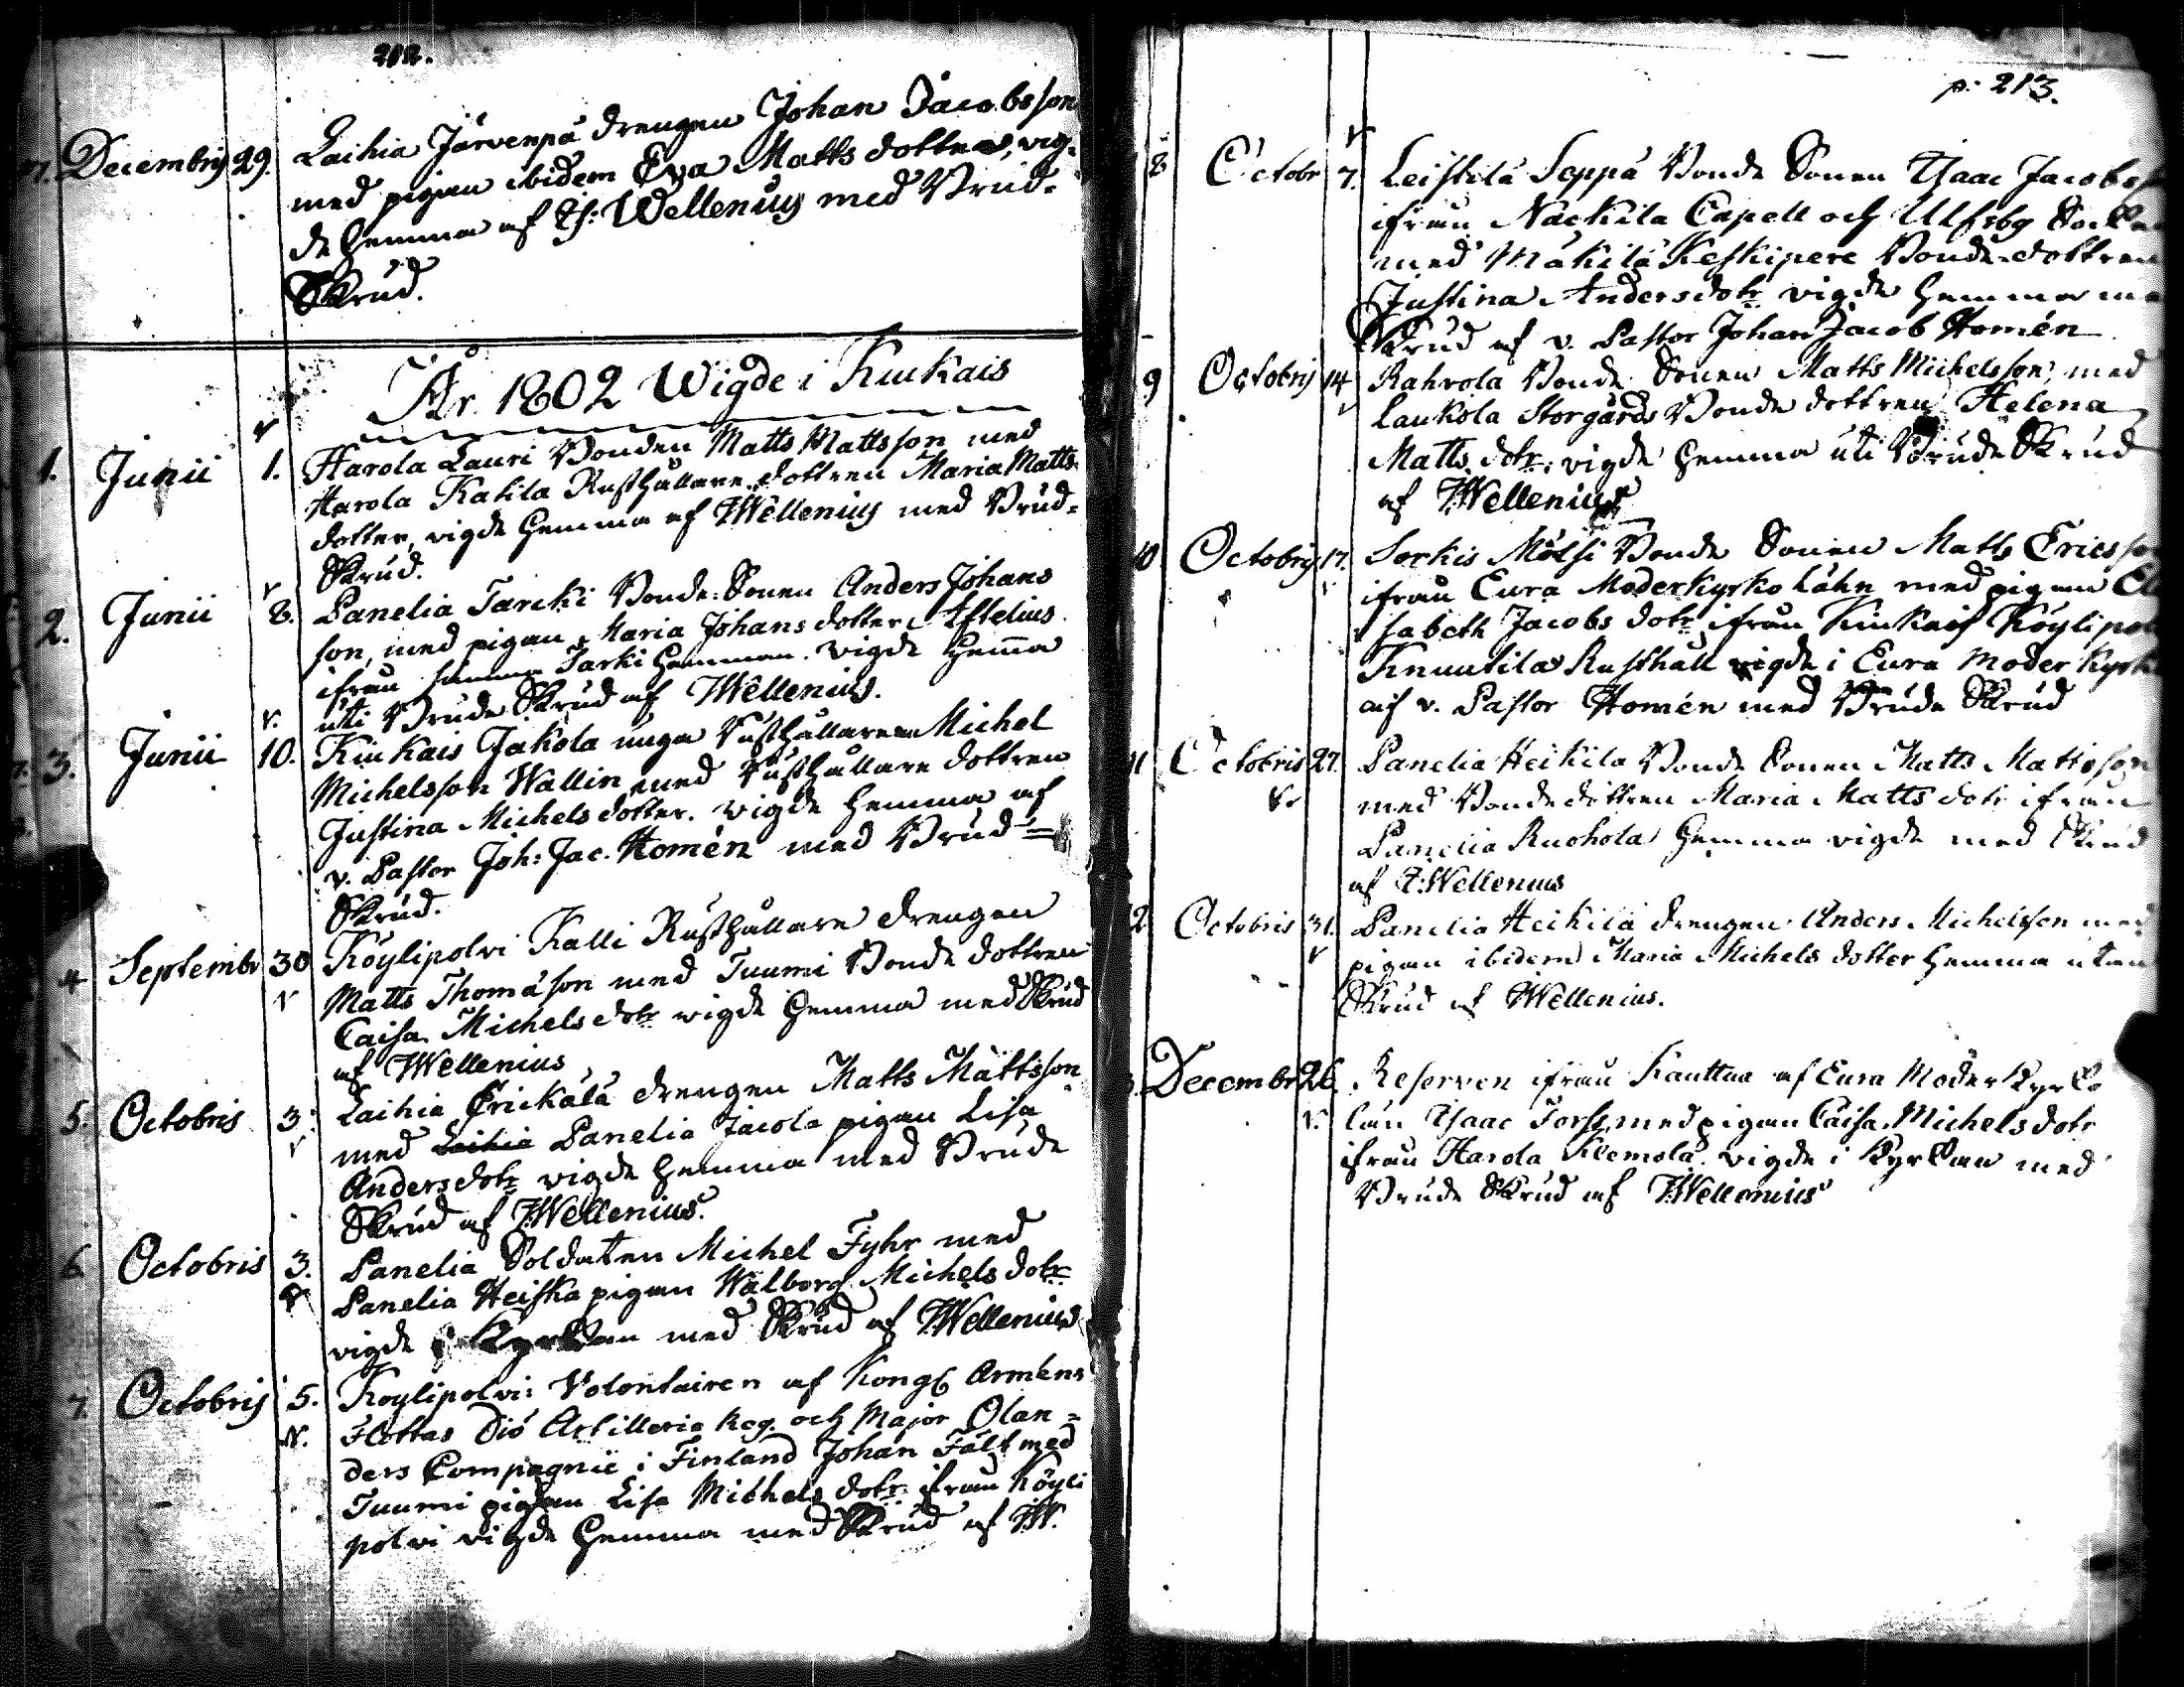 212.
7. Decembris 29. Laihia Järvenpä drengen Johan Jacobsson
med pigan ibidem Eva Matts dotter, vig-
de hemma af Th: Wellenius med Brud-
Skrud.
År 1802 Wigde i Kiukais
1. Junii 1. Harola Lauri Bonden Matts Mattsson med
Harola Katila Rusthållare dottren Maria Matts
dotter, vigde hemma af Wellenius med Brud-
Skrud.
2. Junii 8. Panelia Tarcki Bonde Sonen Anders Johans
son, med pigan Maria Johans dotter Aftelius
ifrån samma Tarki hemman. vigde hemma
uti Brude Skrud af Wellenius.
3. Junii 10. Kiukais Jakola unga Rusthållaren Michel
Michelsson Wallin med Rusthållare dottren
Justina Michels dotter. vigde hemma af
v. Pastor Joh: Jac. Homén med Brud-
Skrud.
4 Septembr 30 Köylipolvi Kalli Rusthållare drengen
Matts Thomasson med Tuumi Bonde dottren
Caisa Michels dotr vigde hemma med Skrud
af Wellenius
5. Octobris 3. Laihia Erickälä drengen Matts Mattsson
med Laihia Panelia Jacola pigan Lisa
Anders dotr vigde hemma med Brude
Skrud af Wellenius.
6. Octobris 3. Panelia Soldaten Michel Fyhr med
Panelia Heiska pigan Walborg Michels dotr
vigde i Kyrkan med Skrud af Wellenius
7. Octobris 5. Köylipolvi Volontairen af Kongl Arméns
Flottas Artillerie Reg. och Major Olan-
ders Compagnie i Finland Johan Fält med
Tuumi pigan Lisa Michels dotr ifrån Köyli
polvi vigde hemma med Skrud af W.
p. 213.
8 Octobr 7. Leistilä Seppä Bonde Sonen Isaac Jacobs
ifrån Nackila Capell och Ulfsby Sockn
med Mäkilä Keskipere Bonde-dottren
Justina Anders dotr vigde hemma me
Skrud af v. Pastor Johan Jacob Homén
9 Octobris 14 Rahvola Bonde Sonen Matts Michelsson, med
Laukola Storgårds Bonde dottren Helena
Matts dotr, vigde hemma uti Brude Skrud
af Wellenius
10 Octobris 17. Sorkis Mölsi Bonde Sonen Matts Ericsso
ifrån Eura Moderkyrko Låhn med pigan El
sabeth Jacobs dotr ifrån Kiukais Köylipol
Knuutila Rusthåll vigde i Eura Moder Kyrk
af v. Pastor Homén med Brude Skrud
11 Octobris 27. Panelia Heikila Bonde Sonen Matts Mattsson
med Bonde dottren Maria Matts dotr ifrån
Panelia Ruohola hemma vigde med Skrud
af Wellenius
12 Octobris 31. Panelia Heikilä drengen Anders Michelsson med
pigan ibidem Maria Michels dotter hemma utan
Skrud af Wellenius.
Decembr 26. Reserven ifrån Kauttua af Eura Moder Kyrko
lån Isaac Forss, med pigan Caisa Michels dotr
ifrån Harola Klemola. vigde i Kyrkan med
Brude Skrud af Wellenius